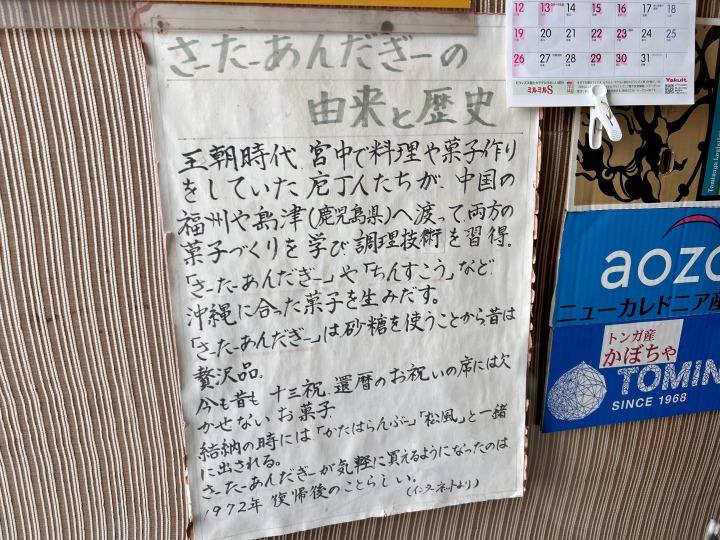 さーたーあんだぎーの
由来と歴史
王朝時代、宮中で料理や菓子作り
をしていた庖丁人たちが、中国の
福州や島津(鹿児島県)へ渡って、両方の
菓子づくりを学び調理技術を習得。
「さーたーあんだぎー」や「ちんすこう」など
沖縄に合った菓子を生みだす。
「さーたーあんだぎー」は砂糖を使うことから昔は
贅沢品。
今も昔も 十三祝、還暦のお祝いの席には欠
かせないお菓子。
結納の時には「かたはらんぶー」「松風」と一緒
に出される。
さーたーあんだぎーが気軽に買えるようになったのは
1972年 復帰後のことらしい。
(インターネットより)
12 13 14 15 16 17 18
19 20 21 22 23 24 25
26 27 28 29 30 31
ミルミルS
Yakult
aozo
ニューカレドニア産
トンガ産
かぼちゃ
TOMIN
SINCE 1968